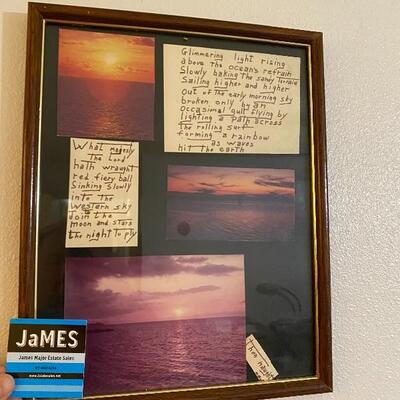 Glimmering light rising
above the ocean's refrain
Slowly baking the sandy terrain
Sailing higher and higher
out of the early morning sky
broken only by an
occasional gull flying by
lighting a path across
the rolling surf
forming a rainbow
as waves
hit the earth
What majesty
The Lord
hath wraught
red fiery ball
Sinking Slowly
into the
Western sky
join the
moon and stars
the night to ply
JaMES
James Major Estate Sales